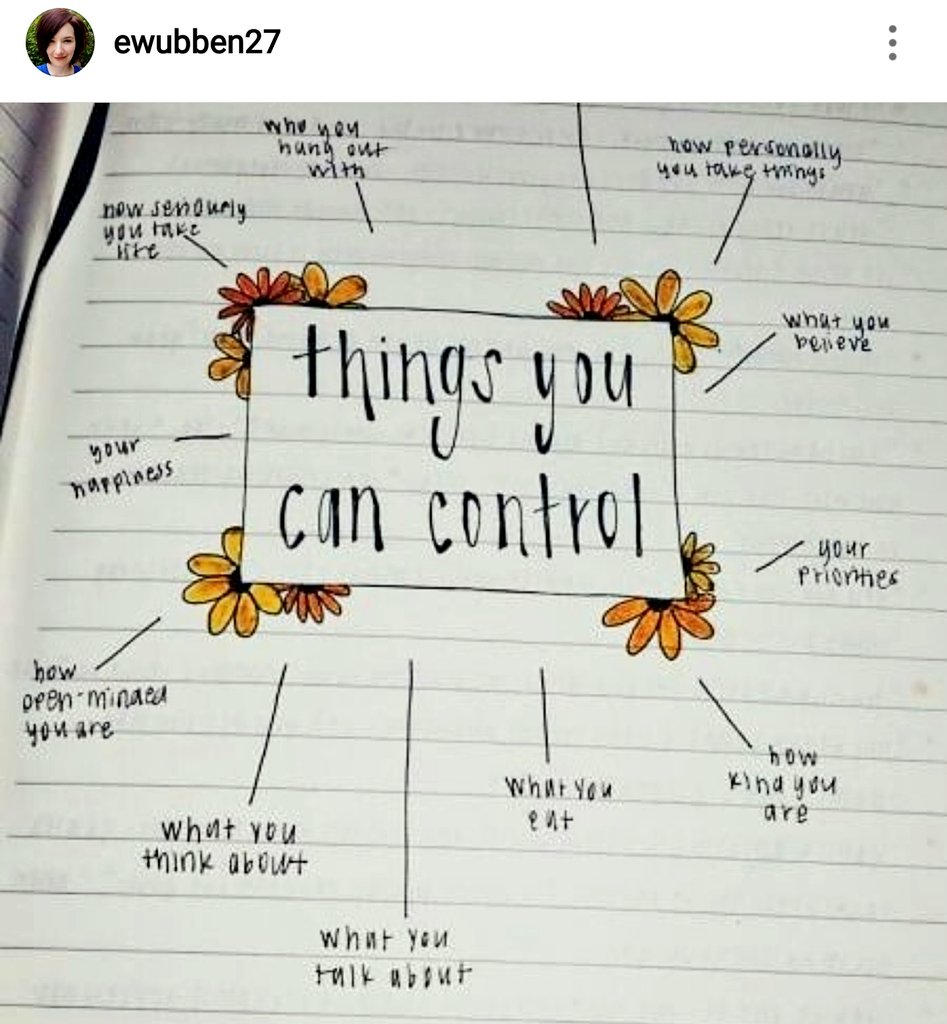 ewubben27
who you
hang out
with
how personally
you take things
how seriously
you take
life
what you
believe
things you
can control
your
happiness
your
priorities
how
open-minded
you are
what you
think about
what you
eat
how
kind you
are
what you
talk about